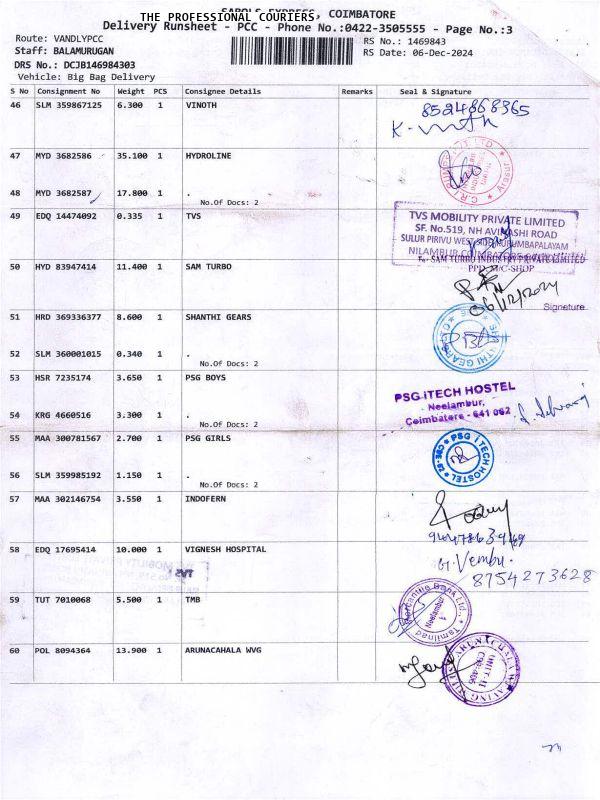 THE PROFESSIONAL COURIERS, COIMBATORE
Delivery Runsheet - PCC - Phone No.:0422-3505555 - Page No.:3
Route: VANDLYPCC
RS No.: 1469843
Staff: BALAMURUGAN
RS Date: 06-Dec-2024
DRS No.: DCJB146984303
Vehicle: Big Bag Delivery
S No Consignment No Weight PCS Consignee Details Remarks Seal & Signature
46 SLM 359867125 6.300 1 VINOTH
8524868365
47 MYD 3682586 35.100 1 HYDROLINE
48 MYD 3682587 17.800 1 .
No.Of Docs: 2
49 EDQ 14474092 0.335 1 TVS
TVS MOBILITY PRIVATE LIMITED
SF. No.519, NH AVINASHI ROAD
SULUR PIRIVU WEST SIDE
50 HYD 83947414 11.400 1 SAM TURBO
To: SAM TURBO INDUSTRY PRIVATE LIMITED
PPD-M/C-SHOP
06/12/2024
Signature
51 HRD 369336377 8.600 1 SHANTHI GEARS
52 SLM 360001015 0.340 1 .
No.Of Docs: 2
53 HSR 7235174 3.650 1 PSG BOYS
PSG iTECH HOSTEL
Neelambur,
Coimbatore - 641 062
54 KRG 4660516 3.300 1 .
No.Of Docs: 2
55 MAA 300781567 2.700 1 PSG GIRLS
PSG iTECH HOSTEL
56 SLM 359985192 1.150 1 .
No.Of Docs: 2
57 MAA 302146754 3.550 1 INDOFERN
58 EDQ 17695414 10.000 1 VIGNESH HOSPITAL
G. Vembu.
8754273628
59 TUT 7010068 5.500 1 TMB
Tamilnad Mercantile Bank Ltd.,
Neelambur
60 POL 8094364 13.900 1 ARUNACAHALA WVG
UNIT-II